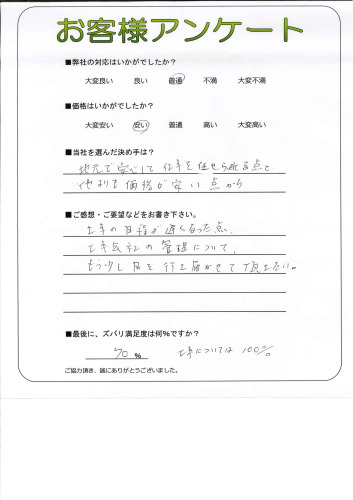 お客様アンケート
■弊社の対応はいかがでしたか?
大変良い 良い 普通 不満 大変不満
■価格はいかがでしたか?
大変安い 安い 普通 高い 大変高い
■当社を選んだ決め手は?
地元で安心して仕事を任せられる点と
他よりも価格が安い点から
■ご感想・ご要望などをお書き下さい。
工事の日程が遅くなった点、
工事会社の管理について、
もう少し目を行き届かせて頂きたい。
■最後に、ズバリ満足度は何%ですか?
70 % 工事については 100%
ご協力頂き、誠にありがとうございました。